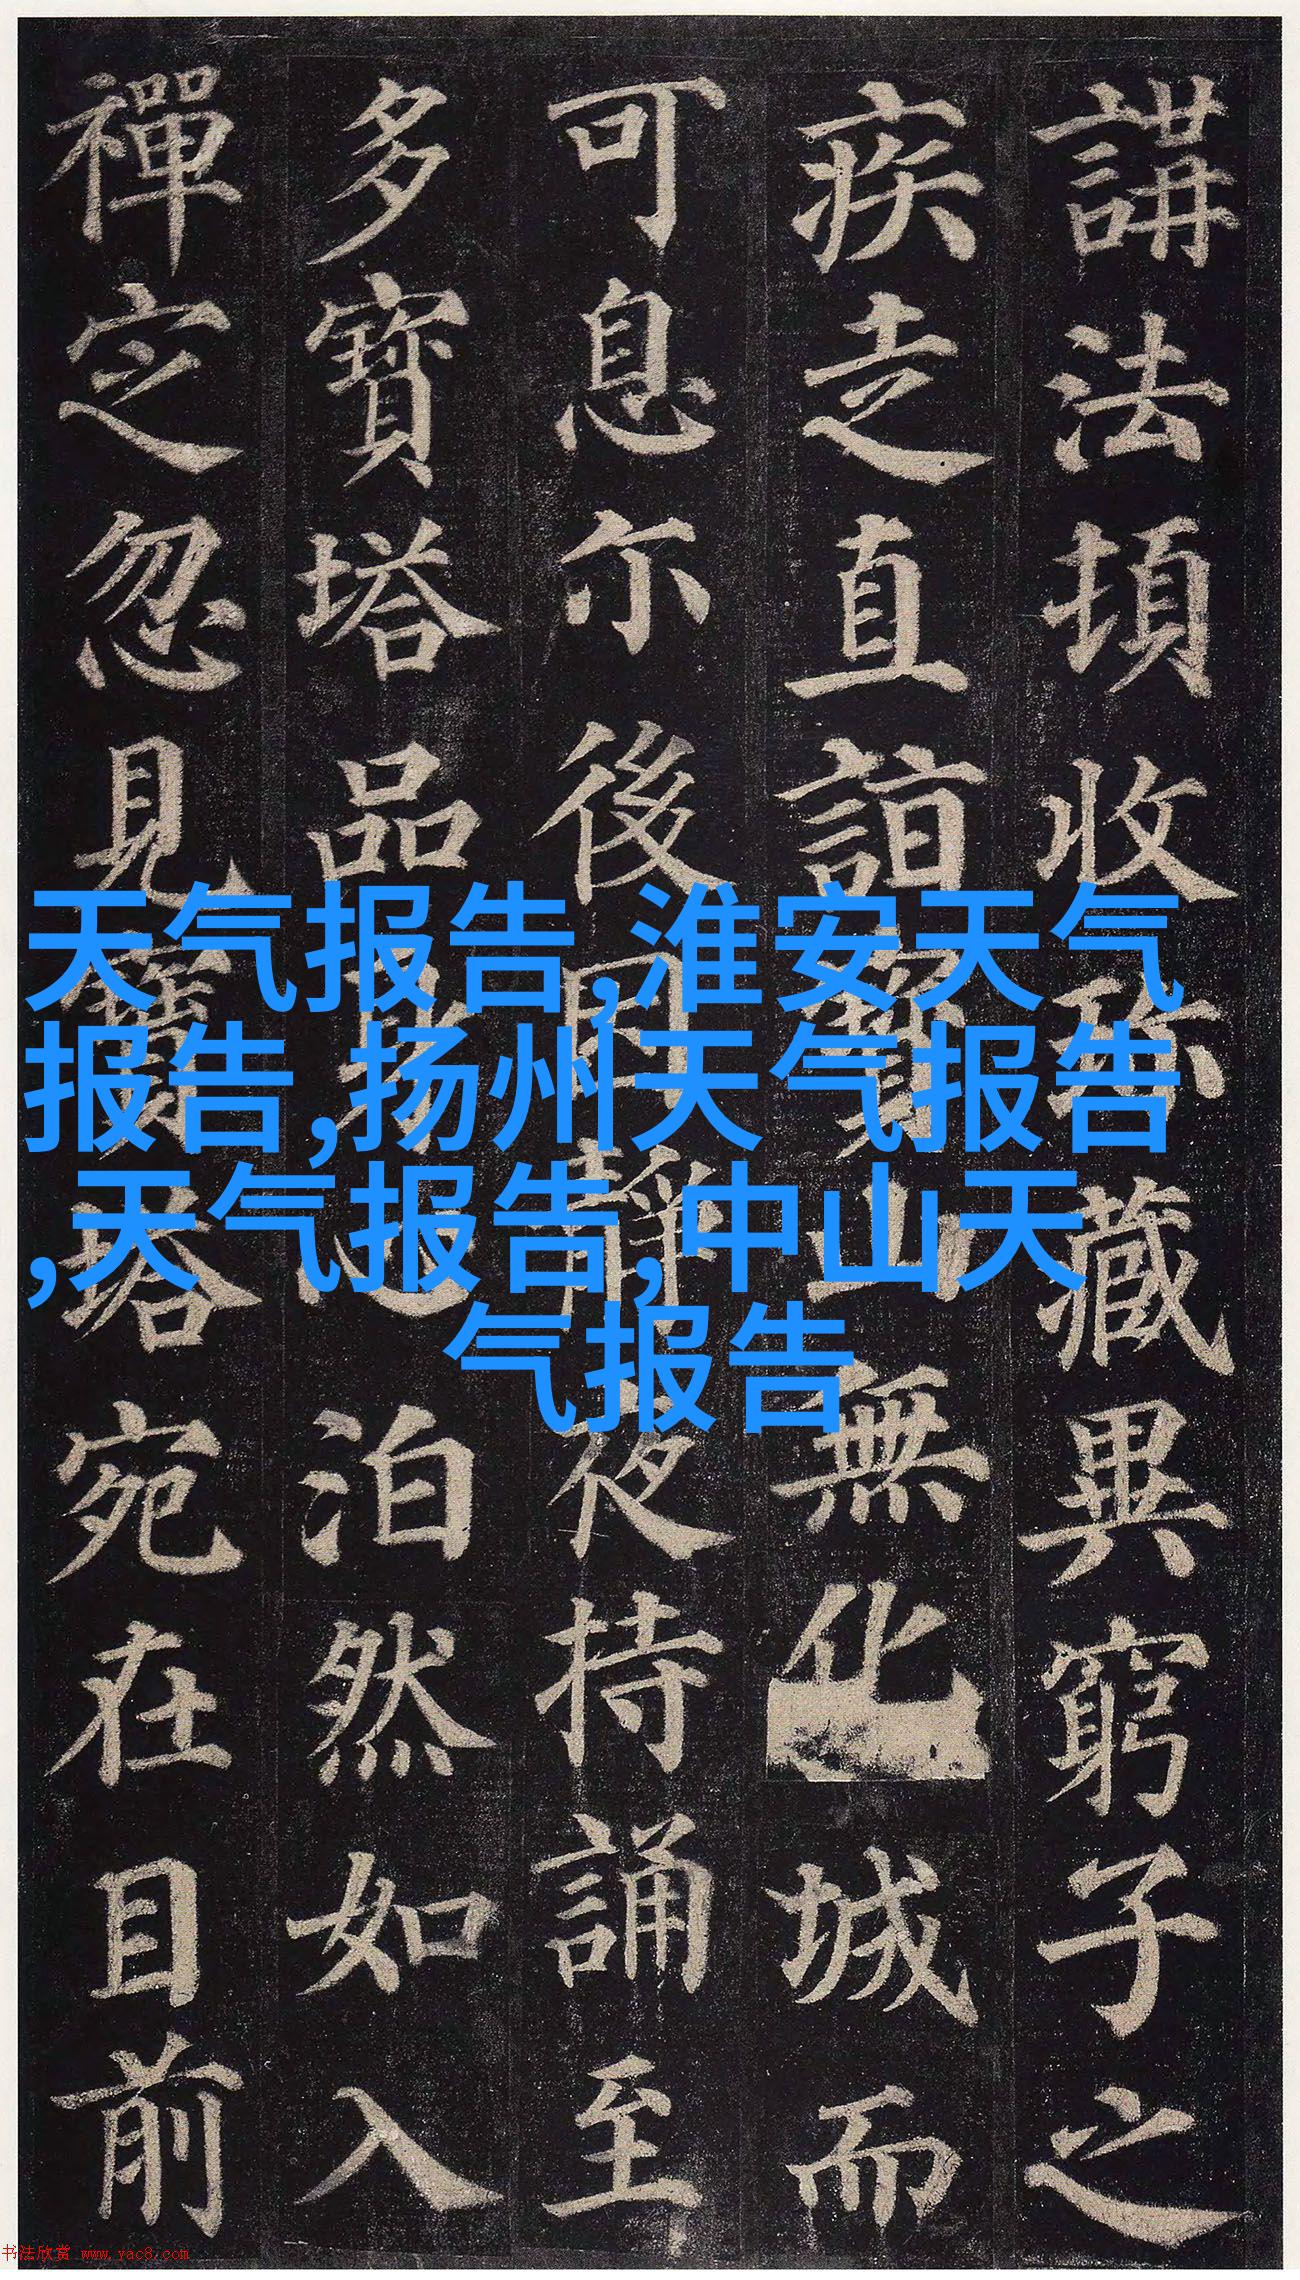 講法頓收珎藏異窮子之
疾走直詣寶山無化城而
可息尒後因靜夜持誦至
多寶塔品身心泊然如入
禪定忽見寶塔宛在目前
天气报告,淮安天气
报告,扬州天气报告
,天气报告,中山天
气报告
书法欣赏 www.yac8.com